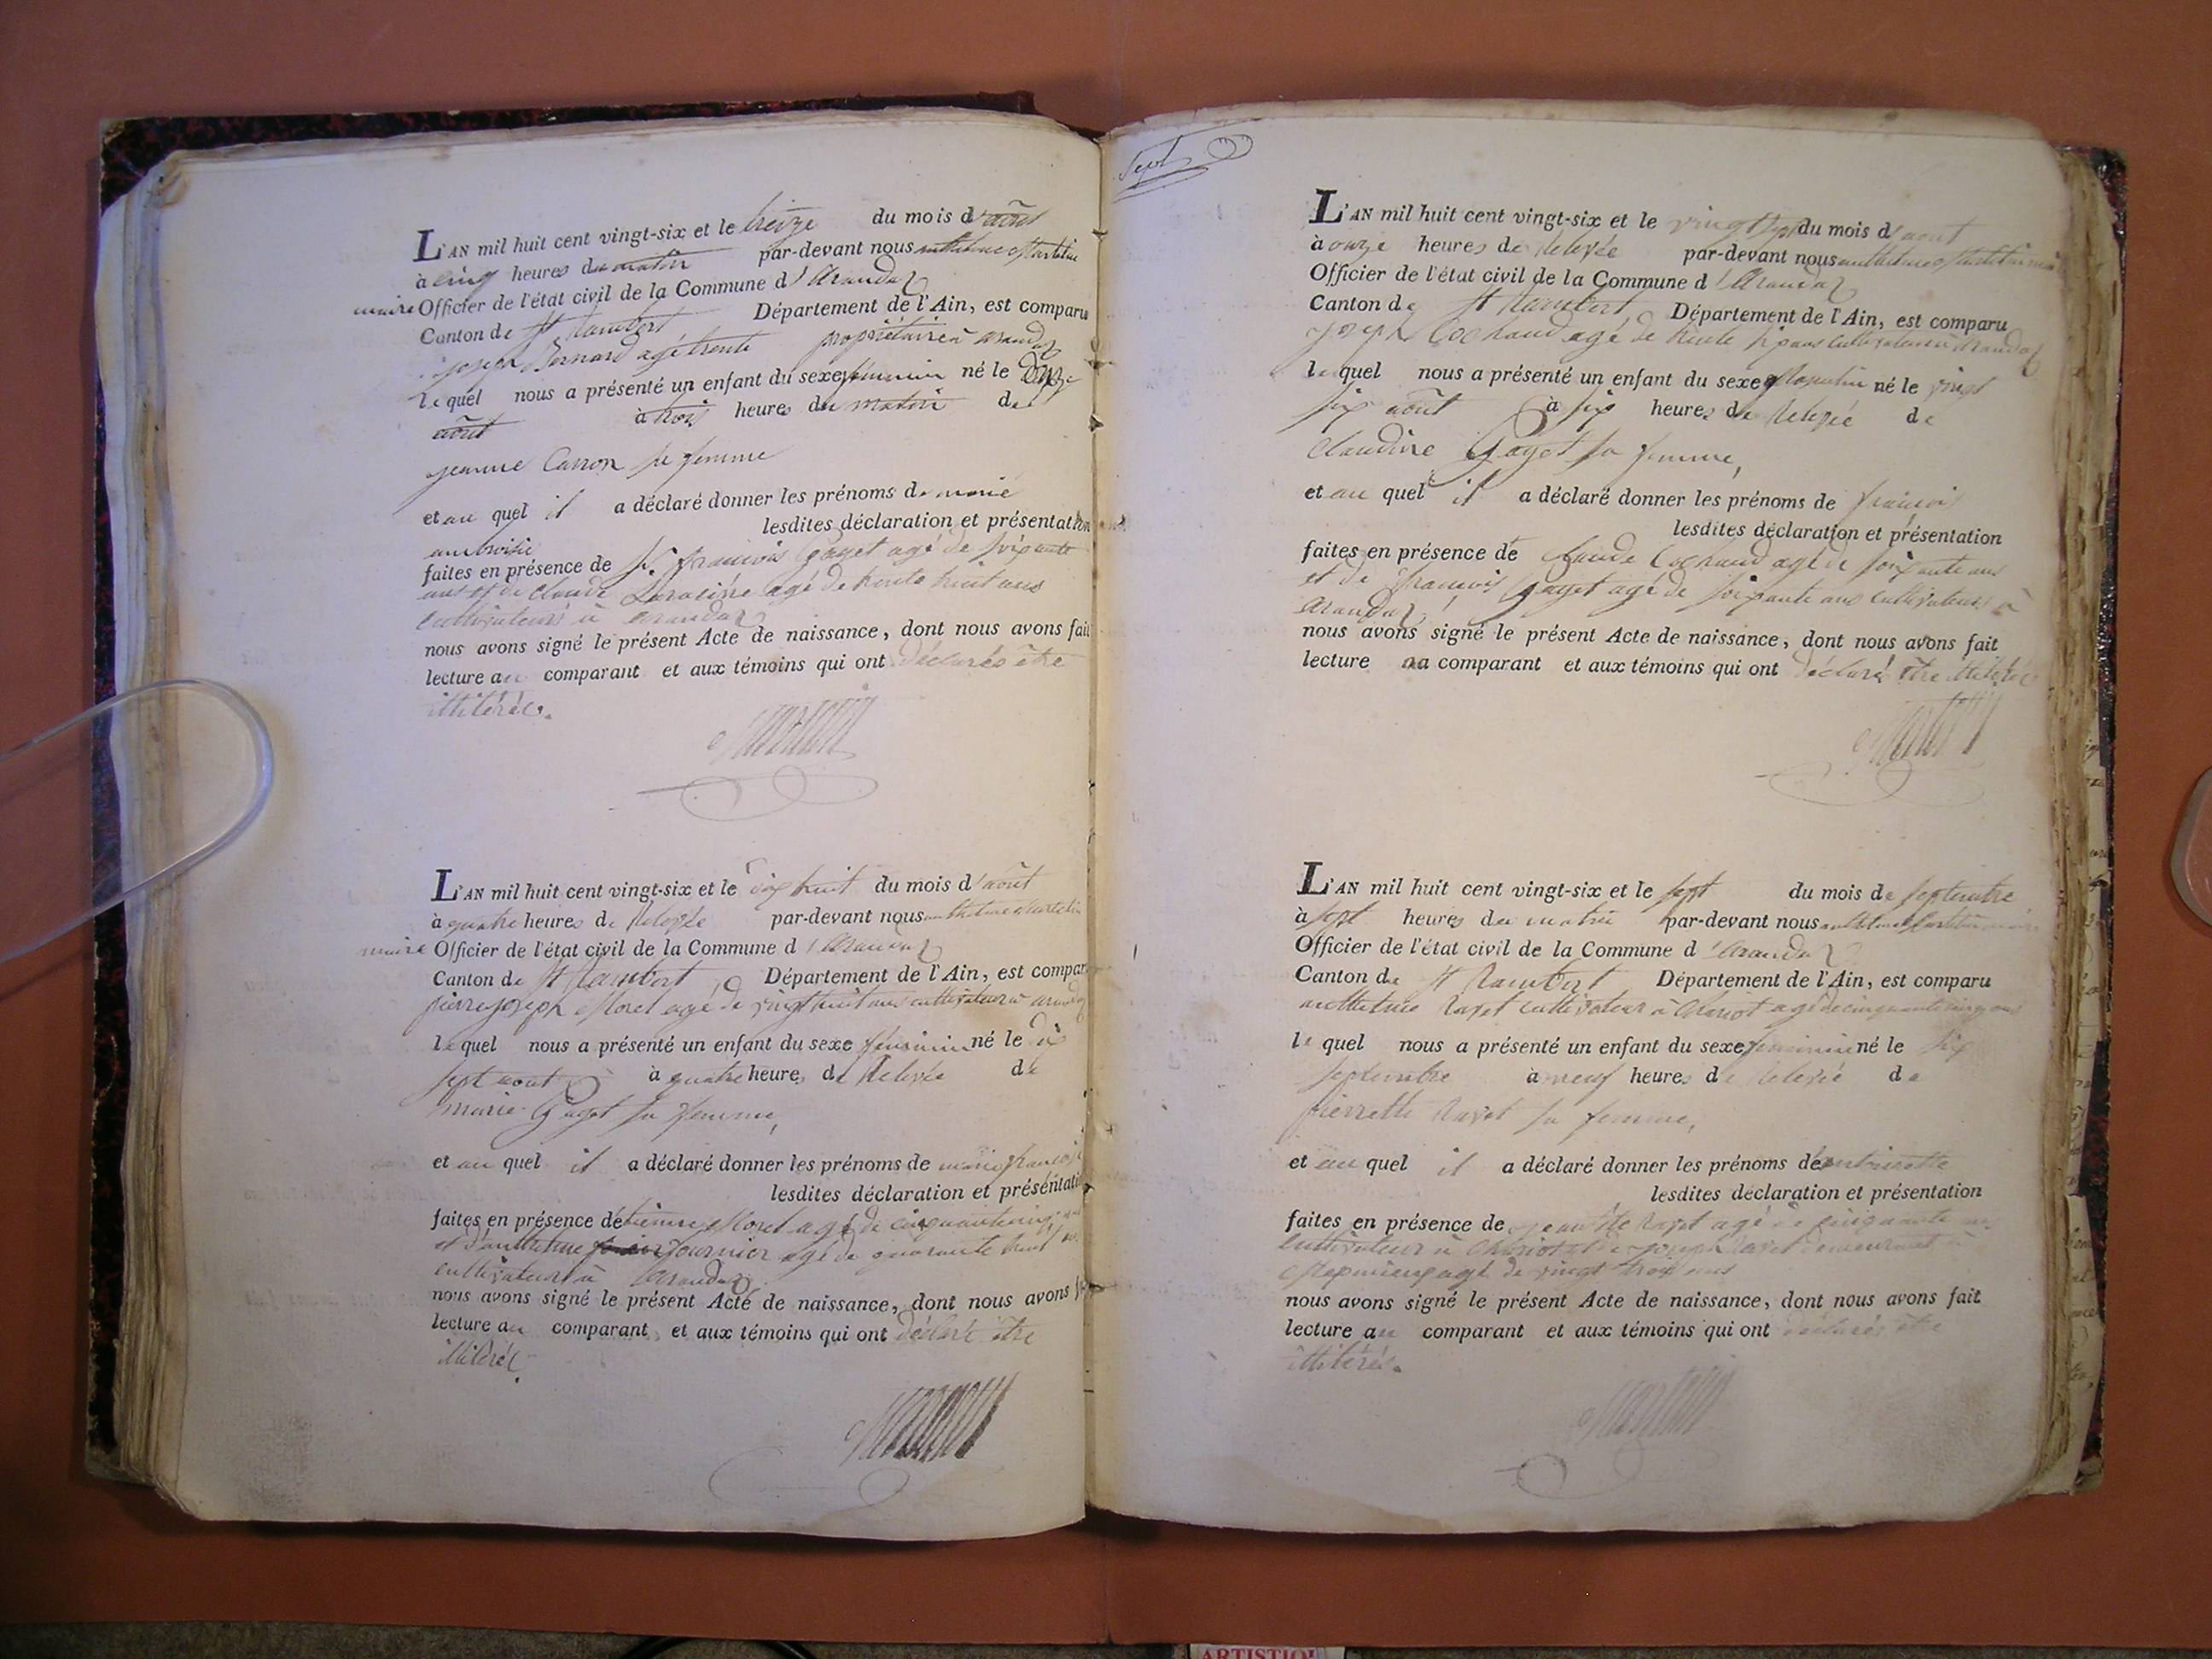 L'AN mil huit cent vingt-six et le treize du mois d'août
à cinq heures du matin par-devant nous anthelme Martelin
maire Officier de l'état civil de la Commune d'Arandaz
Canton de St Rambert Département de l'Ain, est comparu
joseph Bernard agé trente propriétaire à arandaz
lequel nous a présenté un enfant du sexe feminin né le Douze
août à trois heures du matin de
jeanne Carron sa femme
et au quel il a déclaré donner les prénoms de marie
lesdites déclaration et présentation
ambroisie
faites en présence de françois Gayet agé de soixante
ans et de Claude agé de trente huit ans
cultivateurs à arandaz
nous avons signé le présent Acte de naissance, dont nous avons fait
lecture au comparant et aux témoins qui ont déclarés être
illitérés.
L'AN mil huit cent vingt-six et le dix huit du mois d'août
à quatre heures de Relevée par-devant nous anthelme Martelin
maire Officier de l'état civil de la Commune d'Arandaz
Canton de St Rambert Département de l'Ain, est compar
pierre joseph Morel agé de vingt huit ans cultivateur à arandaz
lequel nous a présenté un enfant du sexe feminin né le dix
sept aout à quatre heures de Relevée de
marie Gayet sa femme,
et au quel il a déclaré donner les prénoms de marie
lesdites déclaration et présentati
faites en présence d'etienne Morel agé de cinquante cinq
et d'anthelme fournier agé de quarante huit
cultivateurs à Arandaz
nous avons signé le présent Acte de naissance, dont nous avons
lecture au comparant et aux témoins qui ont déclaré être
illitérés
Sept
L'AN mil huit cent vingt-six et le vingt sept du mois d'aout
à onze heures de Relevée par-devant nous anthelme Martelin
Officier de l'état civil de la Commune d'Arandaz
Canton de St Rambert, Département de l'Ain, est comparu
joseph Cochaud agé de trente ans cultivateur à Arandaz
lequel nous a présenté un enfant du sexe Masculin né le vingt
six août à six heures de Relevée de
Claudine Gayet sa femme,
et au quel il a déclaré donner les prénoms de françois
lesdites déclaration et présentation
faites en présence de Claude Cochaud agé de soixante ans
et de françois Gayet agé de soixante ans cultivateurs à
Arandaz,
nous avons signé le présent Acte de naissance, dont nous avons fait
lecture au comparant et aux témoins qui ont déclaré être illitérés
L'AN mil huit cent vingt-six et le sept du mois de septembre
à sept heures du matin par-devant nous anthelme Martelin
Officier de l'état civil de la Commune d'Arandaz
Canton de St Rambert Département de l'Ain, est comparu
anthelme Ravet cultivateur à agé de cinquante cinq ans
lequel nous a présenté un enfant du sexe feminin né le six
septembre à neuf heures de Relevée de
pierrette Ravet sa femme,
et au quel il a déclaré donner les prénoms de antoinette
lesdites déclaration et présentation
faites en présence de Ravet agé de cinquante
cultivateur à et de joseph Ravet demeurant à
agé de vingt trois ans
nous avons signé le présent Acte de naissance, dont nous avons fait
lecture au comparant et aux témoins qui ont déclarés être
illitérés.